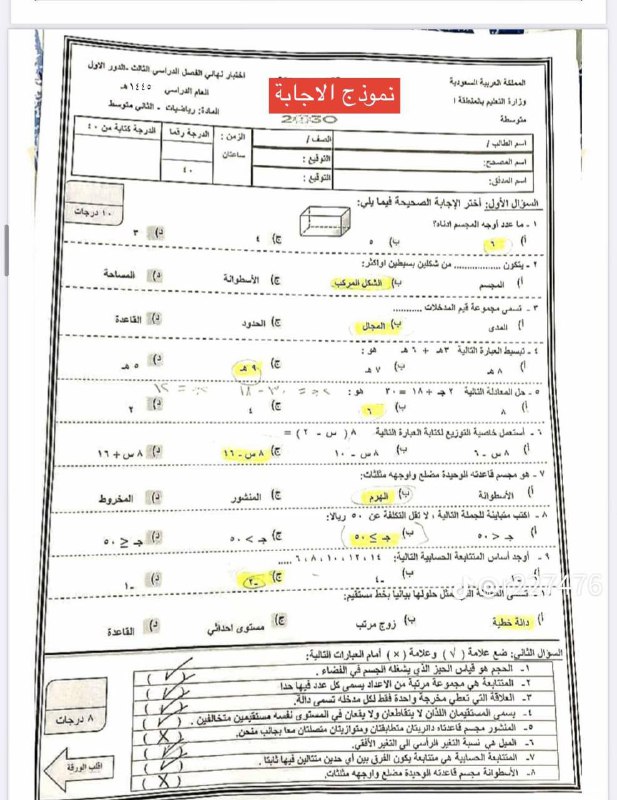 المملكة العربية السعودية
وزارة التعليم بالمنطقة
متوسطة
نموذج الاجابة
اختبار نهائي الفصل الدراسي الثالث -الدور الاول
العام الدراسي ١٤٤٥هـ
المادة: رياضيات - الثاني متوسط
اسم الطالب / الصف / الزمن : الدرجة رقما الدرجة كتابة من ٤٠
اسم المصحح: التوقيع : ساعتان
اسم المدقق: التوقيع : ٤٠
السؤال الأول: أختر الإجابة الصحيحة فيما يلي:
١٠ درجات
١ - ما عدد أوجه المجسم أدناه؟
أ) ٦ ب) ٥ ج) ٤ د) ٣
٢ - يتكون .............. من شكلين بسيطين أواكثر:
أ) المجسم ب) الشكل المركب. ج) الأسطوانة د) المساحة
٣ - تسمى مجموعة قيم المدخلات ...........
أ) المدى ب) المجال ج) الحدود د) القاعدة
٤ - تبسيط العبارة التالية ٣هـ + ٦ هـ هو :
أ) ٨ هـ ب) ٧ هـ ج) ٩ هـ د) ٥ هـ
٥ - حل المعادلة التالية ٢ جـ + ١٨ = ٣٠ هو :
أ) ٨ ب) ٦ ج) ٤ د) ٢
٦ - أستعمل خاصية التوزيع لكتابة العبارة التالية ٨ ( س - ٢ ) =
أ) ٨ س - ٦ ب) ٨ س - ١٠ ج) ٨ س - ١٦ د) ٨ س + ١٦
٧ - هو مجسم قاعدته الوحيدة مضلع واوجهه مثلثات:
أ) الأسطوانة ب) الهرم ج) المنشور د) المخروط
٨ - اكتب متباينة للجملة التالية ، لا تقل التكلفة عن ٥٠ ريالا:
أ) جـ < ٥٠ ب) جـ ≥ ٥٠ ج) جـ > ٥٠ د) جـ ≤ ٥٠
٩ - أوجد أساس المتتابعة الحسابية التالية: ١٤ ، ١٢ ، ١٠ ، ٨ ، ٦ ، .....
ب) -٤ ج) -٢ د) -١
تسمى
تمثل حلولها بيانيا بخط مستقيم:
أ) دالة خطية ب) زوج مرتب ج) مستوى احداثي د) القاعدة
السؤال الثاني: ضع علامة ( √ ) وعلامة ( × ) أمام العبارات التالية:
٨ درجات
١- الحجم هو قياس الحيز الذي يشغله الجسم في الفضاء . ( ✓ )
٢- المتتابعة هي مجموعة مرتبة من الأعداد يسمى كل عدد فيها حدا ( ✓ )
٣- العلاقة التي تعطي مخرجة واحدة فقط لكل مدخلة تسمى دالة. ( ✓ )
٤- يسمى المستقيمان اللذان لا يتقاطعان ولا يقعان في المستوى نفسه مستقيمين متخالفين . ( ✓ )
٥- المنشور مجسم قاعدتاه دائريتان متطابقتان ومتوازيتان متصلتان معا بجانب منحن. ( X )
٦- الميل هي نسبة التغير الرأسي الى التغير الأفقي. ( ✓ )
٧- المتتابعة الحسابية هي متتابعة يكون الفرق بين أي حدين متتاليين فيها ثابتا . ( ✓ )
٨- الأسطوانة مجسم قاعدته الوحيدة مضلع واوجهه مثلثات. ( X )
اقلب الورقة